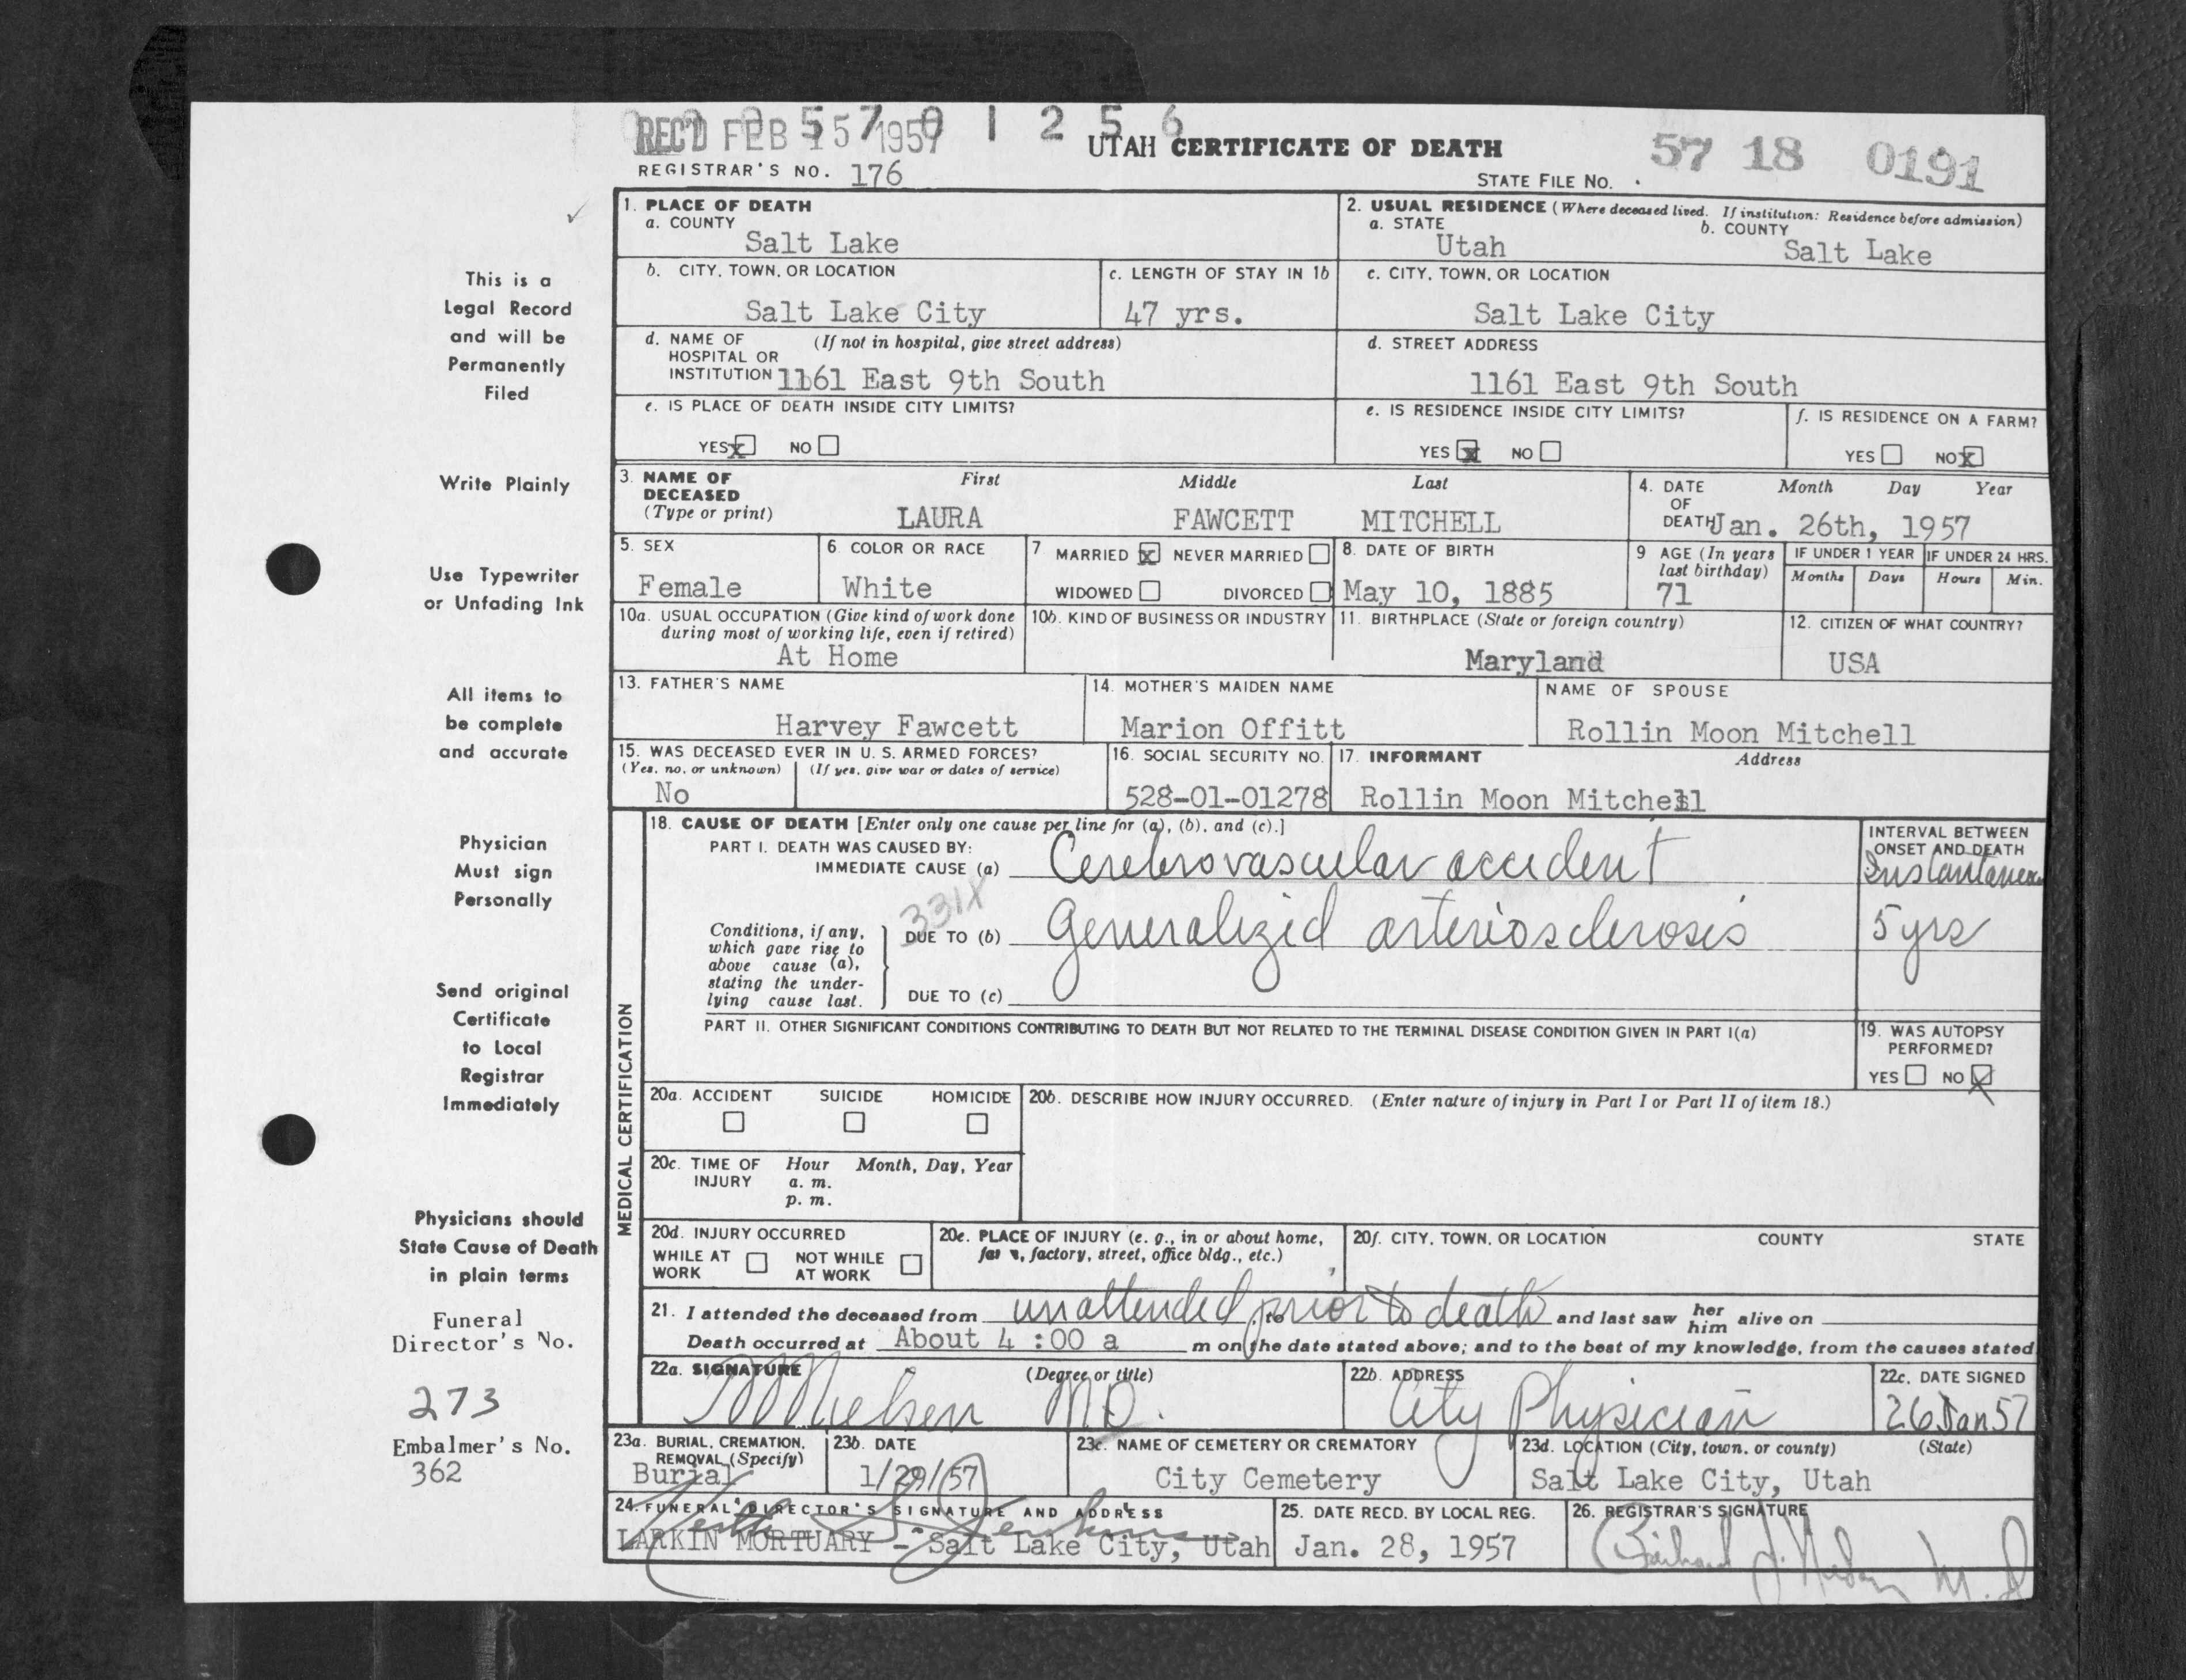 REC'D FEB 15 1957
5 7 0 1 2 5 6
UTAH CERTIFICATE OF DEATH
57 18 0191
REGISTRAR'S NO. 176
STATE FILE NO.
This is a
Legal Record
and will be
Permanently
Filed
Write Plainly
Use Typewriter
or Unfading Ink
All items to
be complete
and accurate
Physician
Must sign
Personally
Send original
Certificate
to Local
Registrar
Immediately
Physicians should
State Cause of Death
in plain terms
Funeral
Director's No.
273
Embalmer's No.
362
1. PLACE OF DEATH
a. COUNTY
Salt Lake
2. USUAL RESIDENCE (Where deceased lived. If institution: Residence before admission)
a. STATE
Utah
b. COUNTY
Salt Lake
b. CITY, TOWN, OR LOCATION
Salt Lake City
c. LENGTH OF STAY IN 1b
47 yrs.
c. CITY, TOWN, OR LOCATION
Salt Lake City
d. NAME OF (If not in hospital, give street address)
HOSPITAL OR
INSTITUTION 1161 East 9th South
d. STREET ADDRESS
1161 East 9th South
e. IS PLACE OF DEATH INSIDE CITY LIMITS?
YES x NO
e. IS RESIDENCE INSIDE CITY LIMITS?
YES x NO
f. IS RESIDENCE ON A FARM?
YES NO x
3. NAME OF
DECEASED
(Type or print)
First Middle Last
LAURA FAWCETT MITCHELL
4. DATE Month Day Year
OF
DEATH Jan. 26th, 1957
5. SEX
Female
6. COLOR OR RACE
White
7 MARRIED x NEVER MARRIED
WIDOWED DIVORCED
8. DATE OF BIRTH
May 10, 1885
9 AGE (In years
last birthday)
71
IF UNDER 1 YEAR
Months Days
IF UNDER 24 HRS.
Hours Min.
10a. USUAL OCCUPATION (Give kind of work done
during most of working life, even if retired)
At Home
10b. KIND OF BUSINESS OR INDUSTRY
11. BIRTHPLACE (State or foreign country)
Maryland
12. CITIZEN OF WHAT COUNTRY?
USA
13. FATHER'S NAME
Harvey Fawcett
14. MOTHER'S MAIDEN NAME
Marion Offitt
NAME OF SPOUSE
Rollin Moon Mitchell
15. WAS DECEASED EVER IN U. S. ARMED FORCES?
(Yes, no, or unknown) (If yes, give war or dates of service)
No
16. SOCIAL SECURITY NO.
528-01-01278
17. INFORMANT Address
Rollin Moon Mitchell
MEDICAL CERTIFICATION
18. CAUSE OF DEATH [Enter only one cause per line for (a), (b), and (c).]
PART I. DEATH WAS CAUSED BY:
IMMEDIATE CAUSE (a) Cerebrovascular accident
INTERVAL BETWEEN
ONSET AND DEATH
331X
Conditions, if any,
which gave rise to
above cause (a),
stating the under-
lying cause last.
DUE TO (b) Generalized arteriosclerosis
5 yrs
DUE TO (c)
PART II. OTHER SIGNIFICANT CONDITIONS CONTRIBUTING TO DEATH BUT NOT RELATED TO THE TERMINAL DISEASE CONDITION GIVEN IN PART I(a)
19. WAS AUTOPSY
PERFORMED?
YES NO X
20a. ACCIDENT SUICIDE HOMICIDE
20b. DESCRIBE HOW INJURY OCCURRED. (Enter nature of injury in Part I or Part II of item 18.)
20c. TIME OF Hour Month, Day, Year
INJURY a. m.
p. m.
20d. INJURY OCCURRED
WHILE AT NOT WHILE
WORK AT WORK
20e. PLACE OF INJURY (e. g., in or about home,
farm, factory, street, office bldg., etc.)
20f. CITY, TOWN, OR LOCATION COUNTY STATE
21. I attended the deceased from unattended, to prior to death and last saw her him alive on
Death occurred at About 4 :00 a m on the date stated above; and to the best of my knowledge, from the causes stated
22a. SIGNATURE (Degree or title)
Nielsen M.D.
22b. ADDRESS
City Physician
22c. DATE SIGNED
26 Jan 57
23a. BURIAL, CREMATION,
REMOVAL (Specify)
Burial
23b. DATE
1/29/57
23c. NAME OF CEMETERY OR CREMATORY
City Cemetery
23d. LOCATION (City, town, or county) (State)
Salt Lake City, Utah
24. FUNERAL DIRECTOR'S SIGNATURE AND ADDRESS
LARKIN MORTUARY - Salt Lake City, Utah
25. DATE RECD. BY LOCAL REG.
Jan. 28, 1957
26. REGISTRAR'S SIGNATURE
M.D